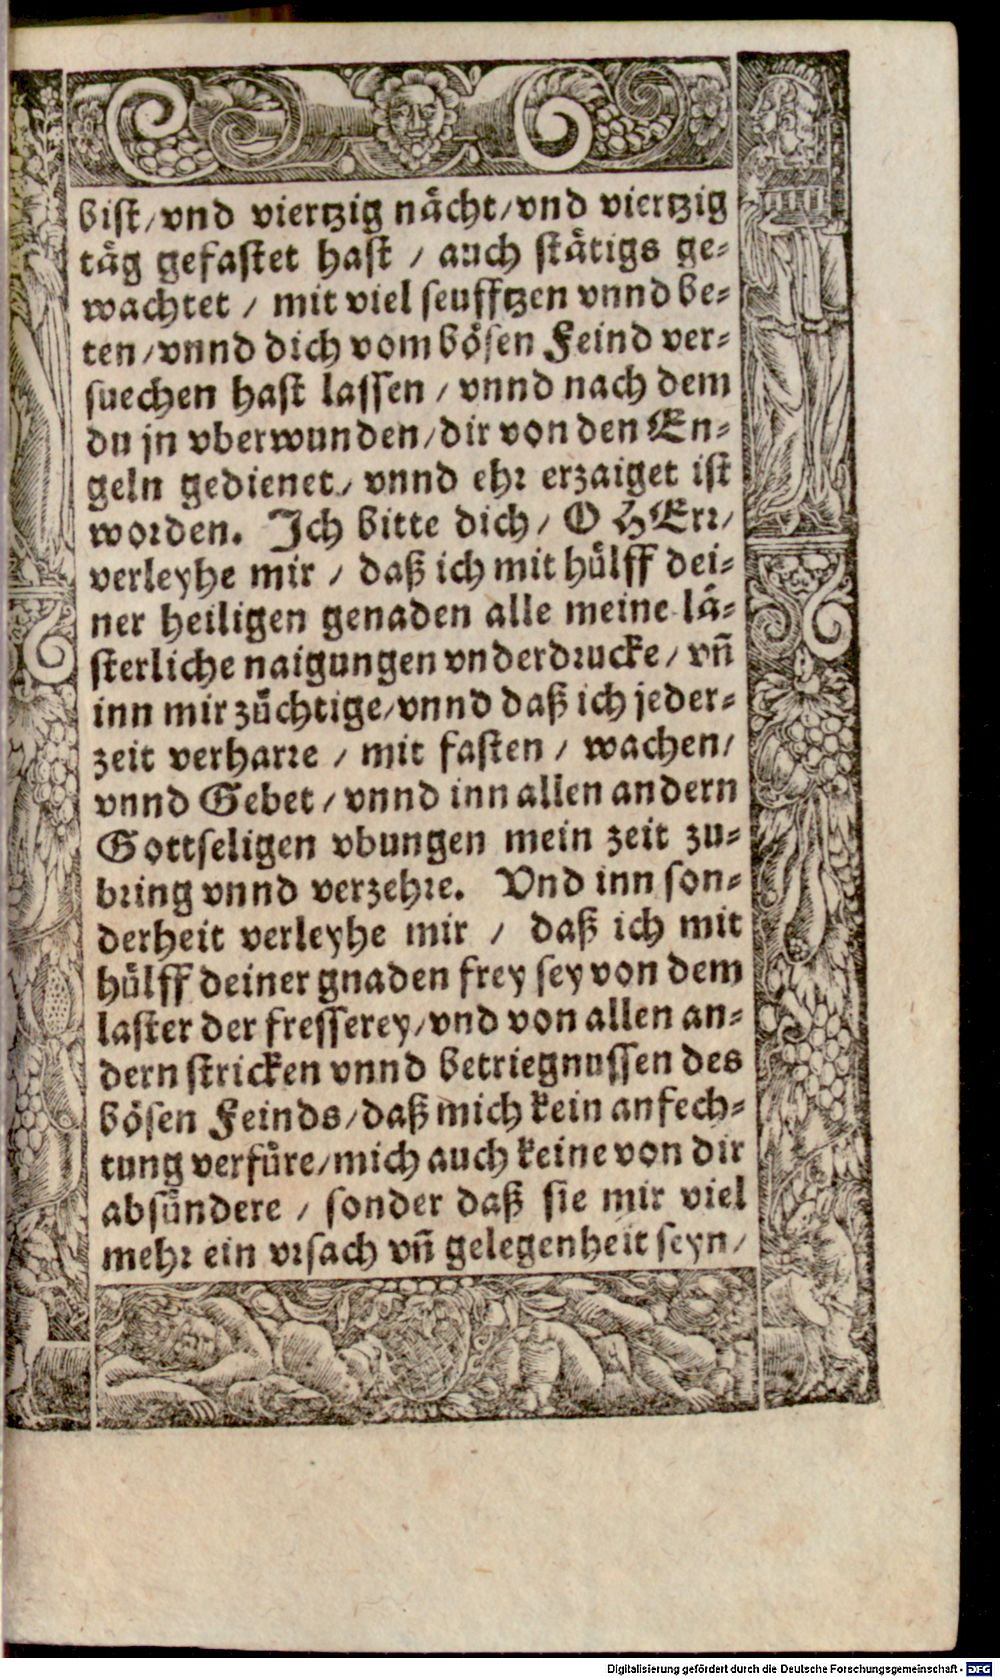 bist/vnd viertzig nächt/vnd viertzig
täg gefastet hast / auch stätigs ge=
wachtet / mit viel seufftzen vnnd be=
ten/vnnd dich vom bösen Feind ver=
suechen hast lassen / vnnd nach dem
du jn vberwunden/dir von den En=
geln gedienet/ vnnd ehr erzaiget ist
worden. Ich bitte dich/ O HErr/
verleyhe mir / daß ich mit hülff dei=
ner heiligen genaden alle meine lä=
sterliche naigungen vnderdrucke/ vñ
inn mir züchtige/vnnd daß ich jeder=
zeit verharre / mit fasten / wachen/
vnnd Gebet/ vnnd inn allen andern
Gottseligen vbungen mein zeit zu=
bring vnnd verzehre. Vnd inn son=
derheit verleyhe mir / daß ich mit
hülff deiner gnaden frey sey von dem
laster der fresserey/vnd von allen an=
dern stricken vnnd betriegnussen des
bösen Feinds/daß mich kein anfech=
tung verfüre/mich auch keine von dir
absündere / sonder daß sie mir viel
mehr ein vrsach vñ gelegenheit seyn/
Digitalisierung gefördert durch die Deutsche Forschungsgemeinschaft - DFG